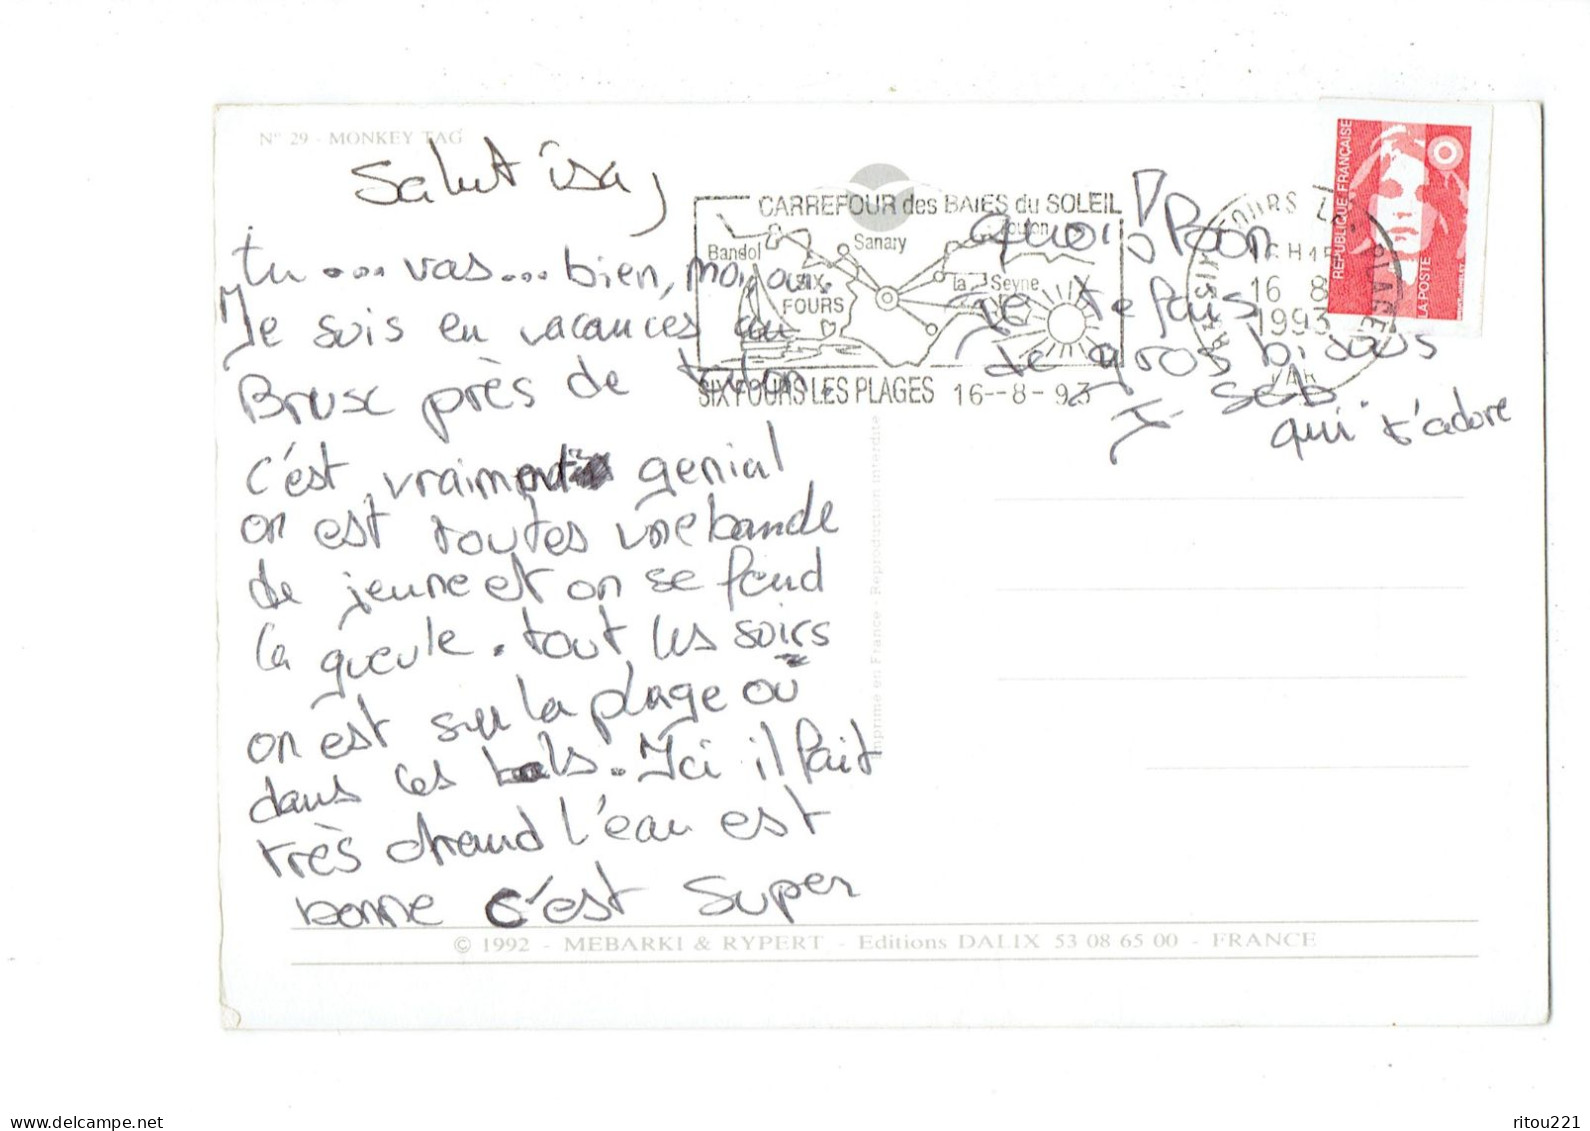 N° 29 - MONKEY TAG
Salut isa,
tu ... vas... bien, moi, oui.
Je suis en vacances au
Brusc près de tulon.
c'est vraiment genial
on est toutes une bande
de jeune et on se fend
la gueule. tout les soirs
on est sur la plage où
dans les bals. Ici il fait
très chaud l'eau est
bonne c'est super
CARREFOUR des BAIES du SOLEIL
Bandol
Sanary
Toulon
SIX
FOURS
la Seyne
SIX FOURS LES PLAGES 16--8-93
16 H 15
16 8
1993
VAR
REPUBLIQUE FRANÇAISE
LA POSTE
quoi! Bon
je te fais
de gros bisous
Seb.
qui t'adore
Imprimé en France - Reproduction interdite
© 1992 - MEBARKI & RYPERT - Editions DALIX 53 08 65 00 - FRANCE
delcampe.net
ritou221